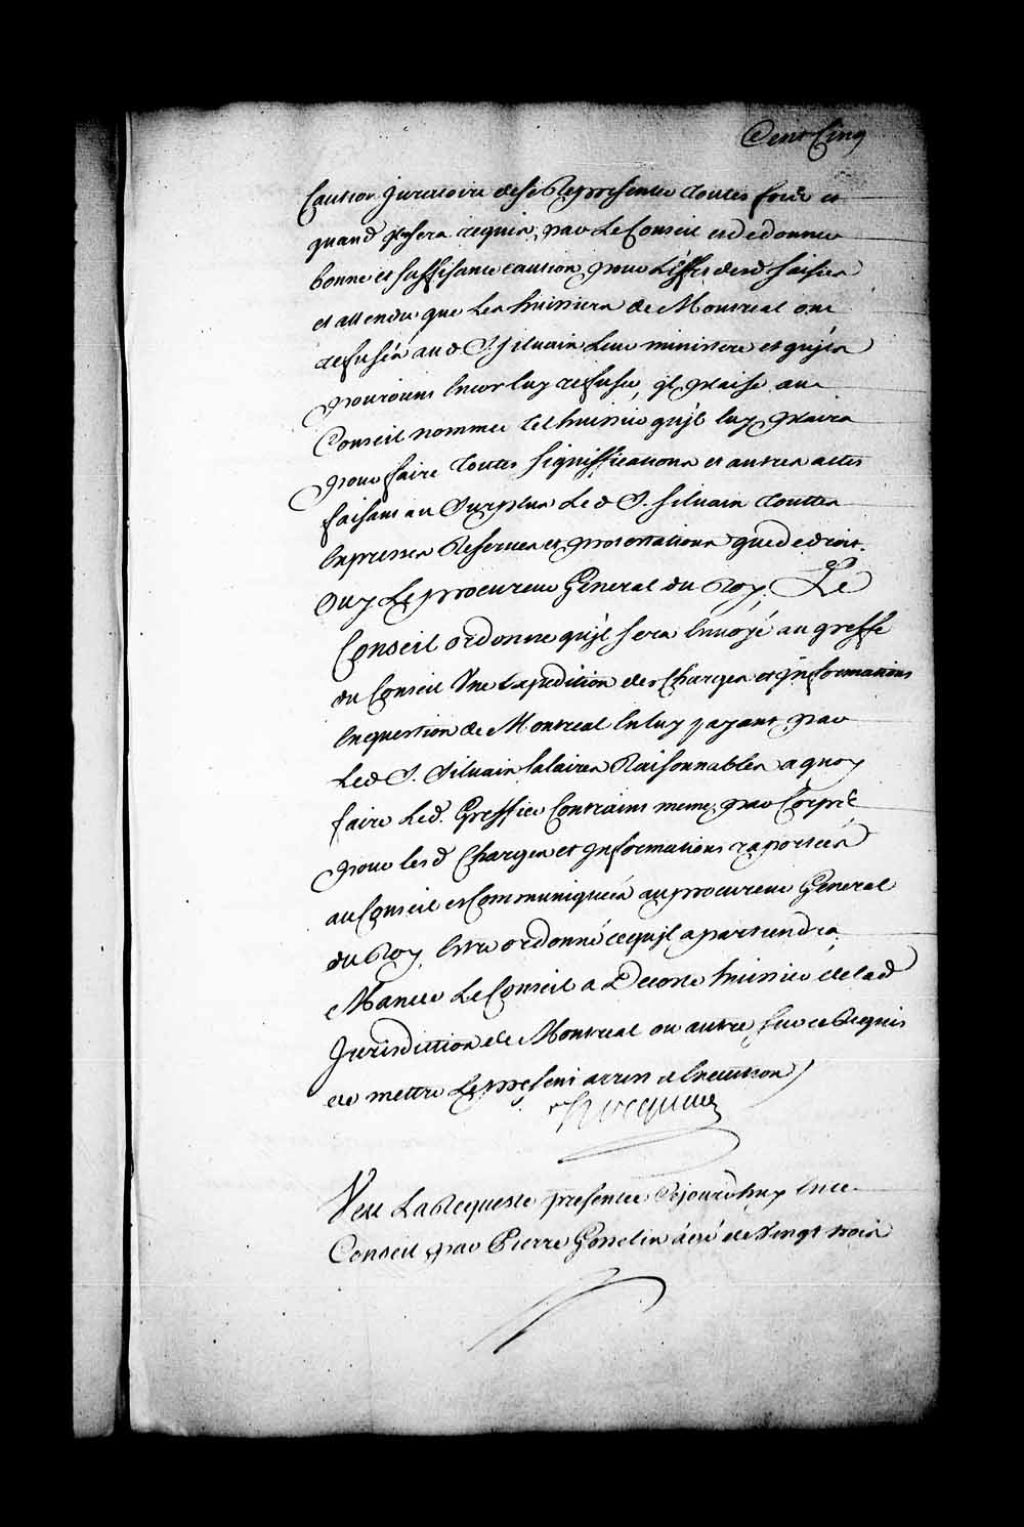 Cent Cinq
Caution juratoire de se Representer toutes fois et
quand jl sera requis, par Le Conseil et de donner
bonne et suffisante caution pour L'effet desd. saisies
et attendu que Les huissiers de Montreal ont
refusés aud S. Silvain Leur ministere et qu'jls
pouroient Encor luy refuser, jl plaise au
Conseil nommer tel huissier qu'jl luy plaira
pour faire toutes significations et autres actes
faisant au Surplus Led S. Silvain touttes
Expresses Reserves et protestations que de droit.
Ouy Le procureur General du Roy, Le
Conseil ordonne qu'jl sera Envoyé au greffe
du Conseil Une Expedition des Charges et jnformations
En question de Montreal En luy payant par
Led S. Silvain salaires Raisonnables a quoy
faire Led. Greffier Contraint meme par Corps
pour lesd Charges et jnformations raportées
au Conseil et Communiquées au procureur General
du Roy, Estre ordonné ce qu'jl apartiendra
Mande Le Conseil a Decoste huissier de lad
Jurisdiction de Montreal ou autre sur ce Requis
de mettre Le present arrest a Execution
Hocquart
Veu La Requeste presentée Cejourd'huy En ce
Conseil par Pierre Gosselin agé de Vingt trois